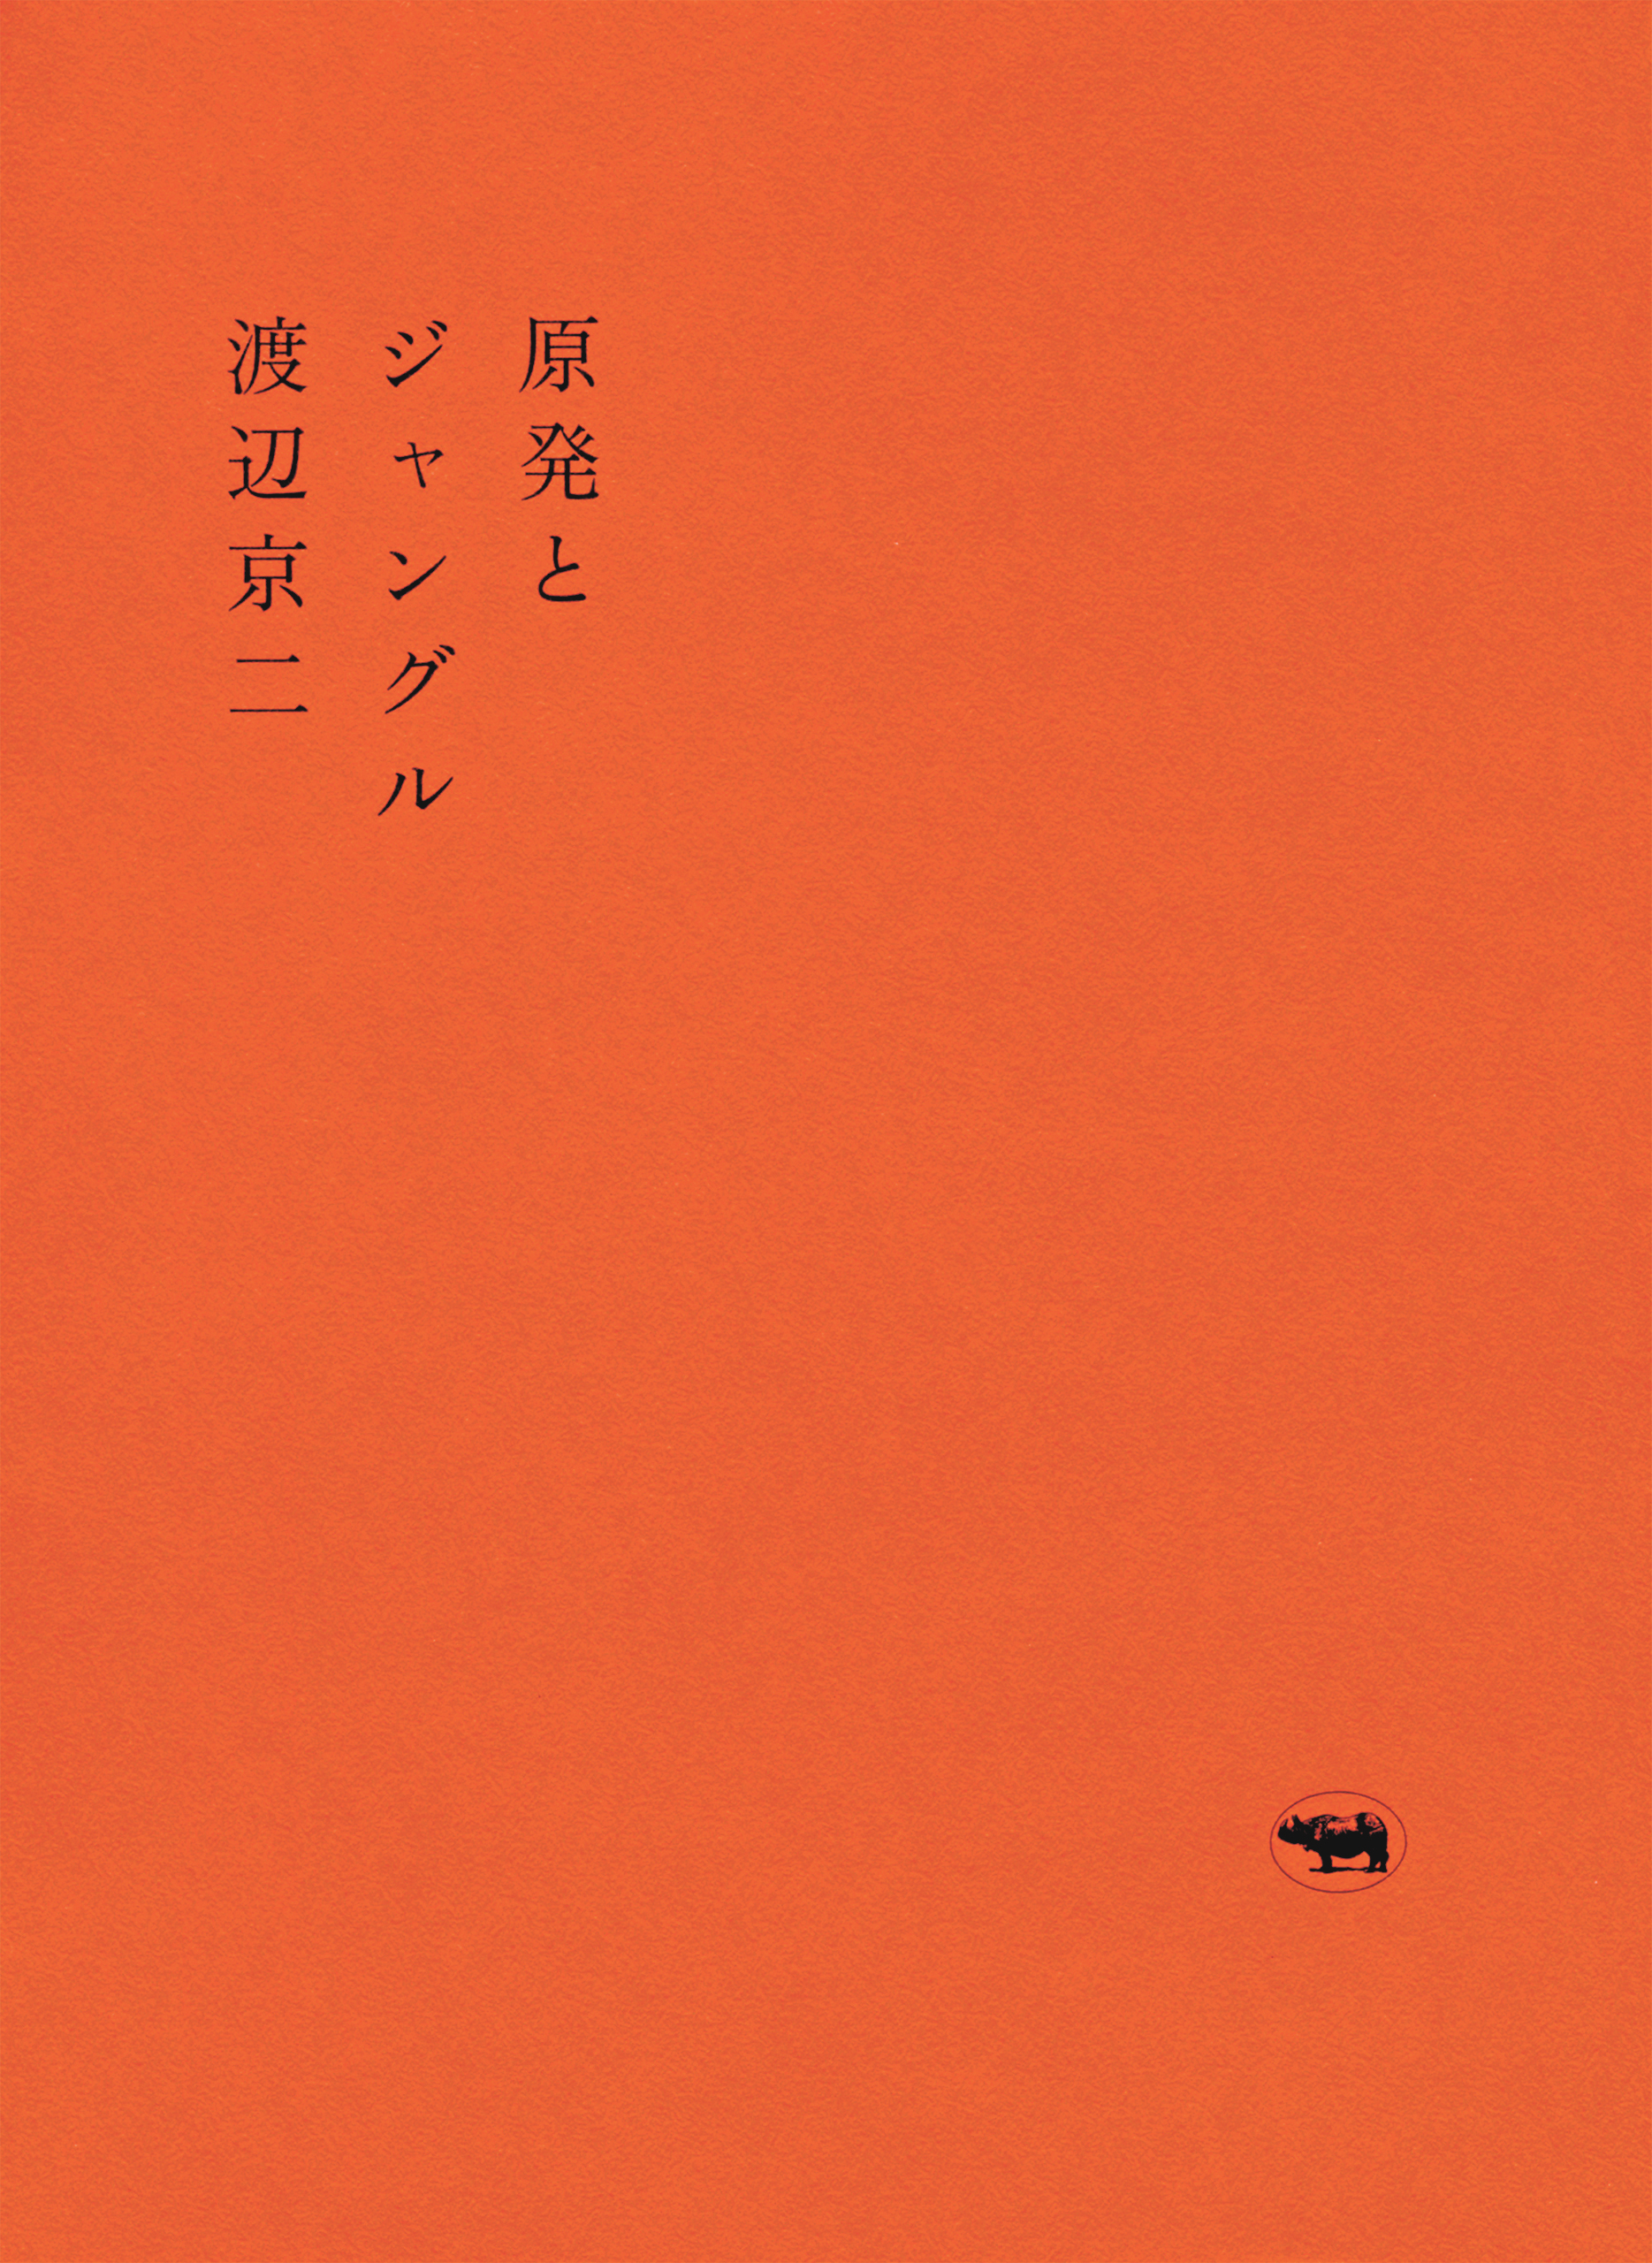 原発と
ジャングル
渡辺京二